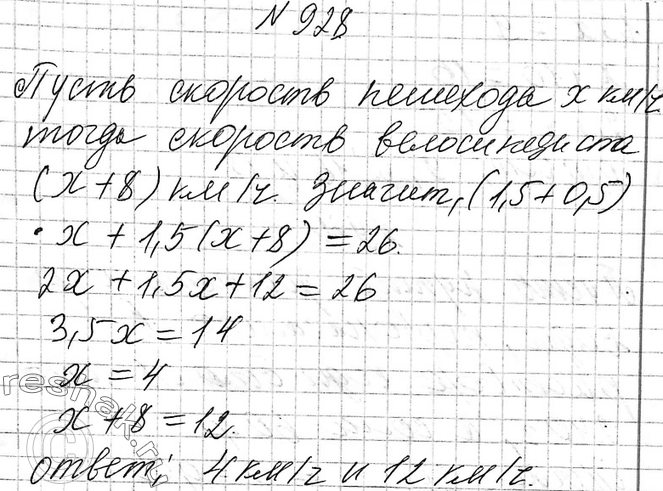 N 928
Пусть скорость пешехода x км/ч
тогда скорость велосипедиста
(x+8) км/ч. Значит, (1,5+0,5)
· x + 1,5(x+8) = 26.
2x + 1,5x + 12 = 26
3,5x = 14
x = 4
x + 8 = 12.
ответ: 4 км/ч и 12 км/ч.
reshak.ru